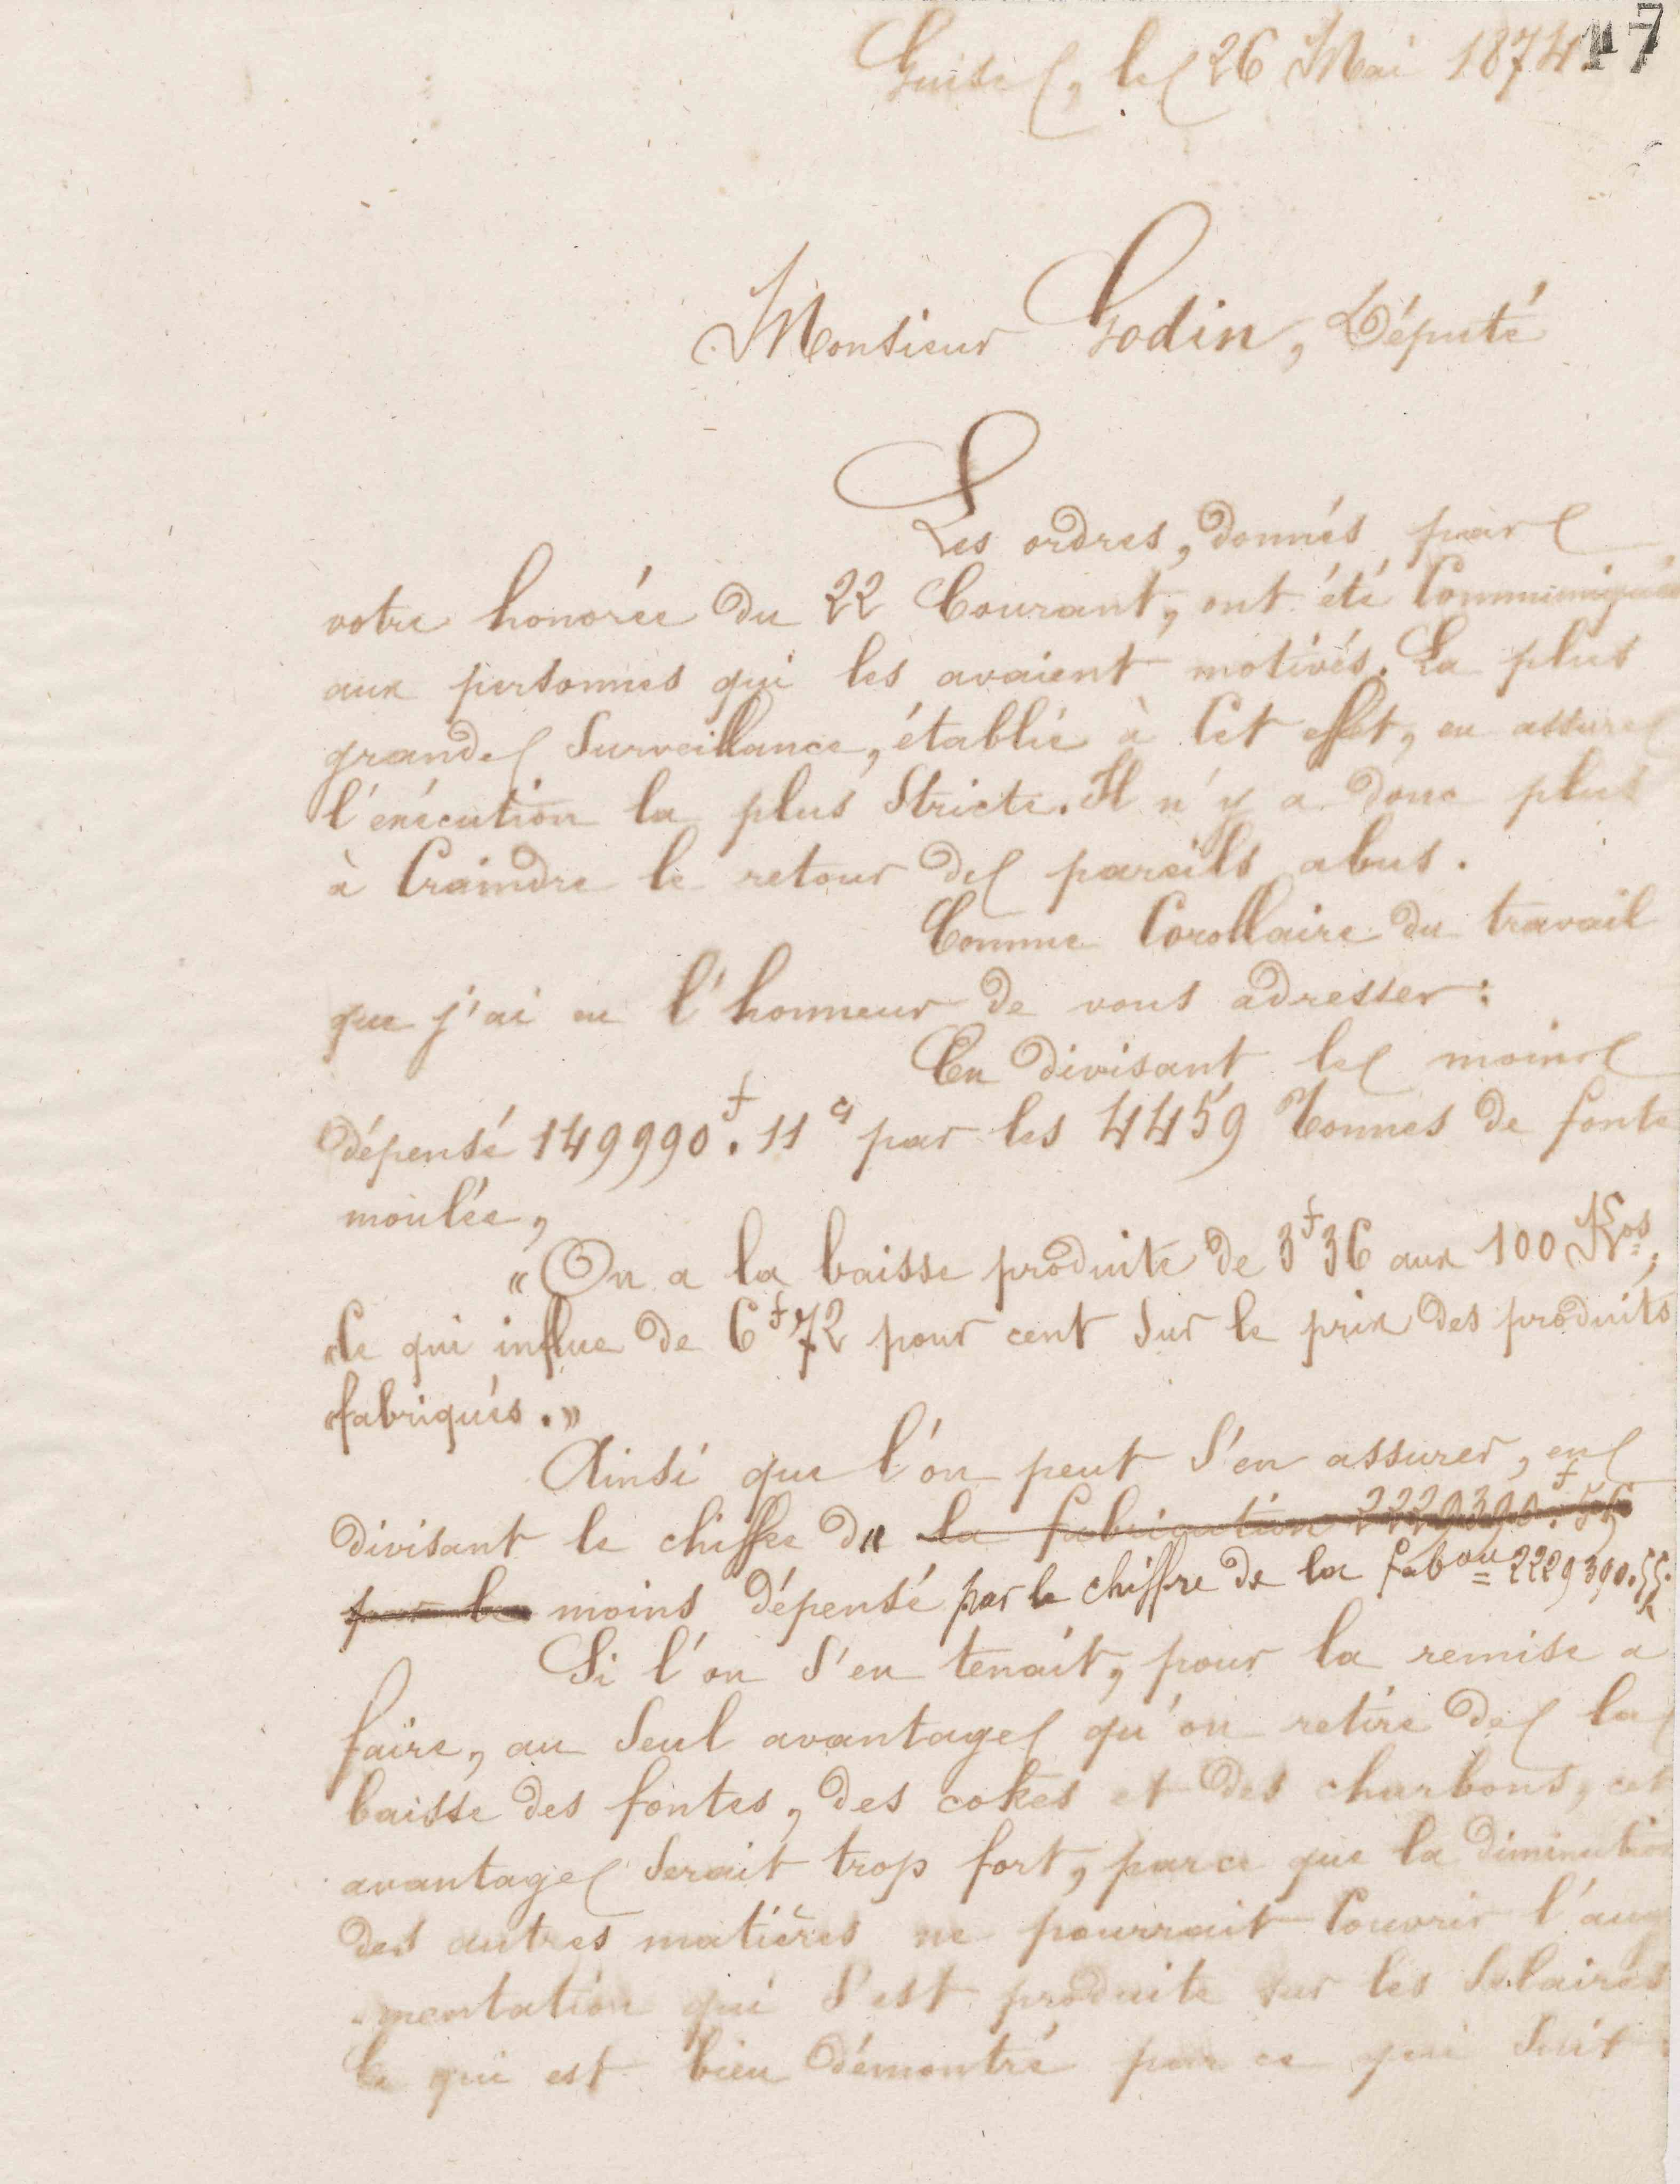 Guise, le 26 Mai 1874.
17
Monsieur Godin, Député
Les ordres, donnés par
votre honorée du 22 Courant, ont été Communiqués
aux personnes qui les avaient motivés. La plus
grande Surveillance, établie à Cet effet, en assure
l'exécution la plus Stricte. Il n'y a donc plus
à Craindre le retour de pareils abus.
Comme Corollaire du travail
que j'ai eu l'honneur de vous adresser:
En divisant le moins
dépensé 149990f.11c par les 4459 Tonnes de fonte
moulée,
"On a la baisse produite de 3f36 aux 100 Kos,
"Ce qui influe de 6f72 pour cent Sur le prix des produits
"fabriqués."
Ainsi que l'on peut S'en assurer, en
divisant le chiffre du la fabrication 2229390f.55
par le moins dépensé par le chiffre de la fabon 2229390.55.
Si l'on S'en tenait, pour la remise a
faire, au Seul avantage qu'on retire de la
baisse des fontes, des cokes et des charbons, cet
avantage Serait trop fort, parce que la diminution
des autres matières ne pourrait Couvrir l'aug
-mentation qui S'est produite sur les Salaires
Ce qui est bien démontré par ce qui Suit